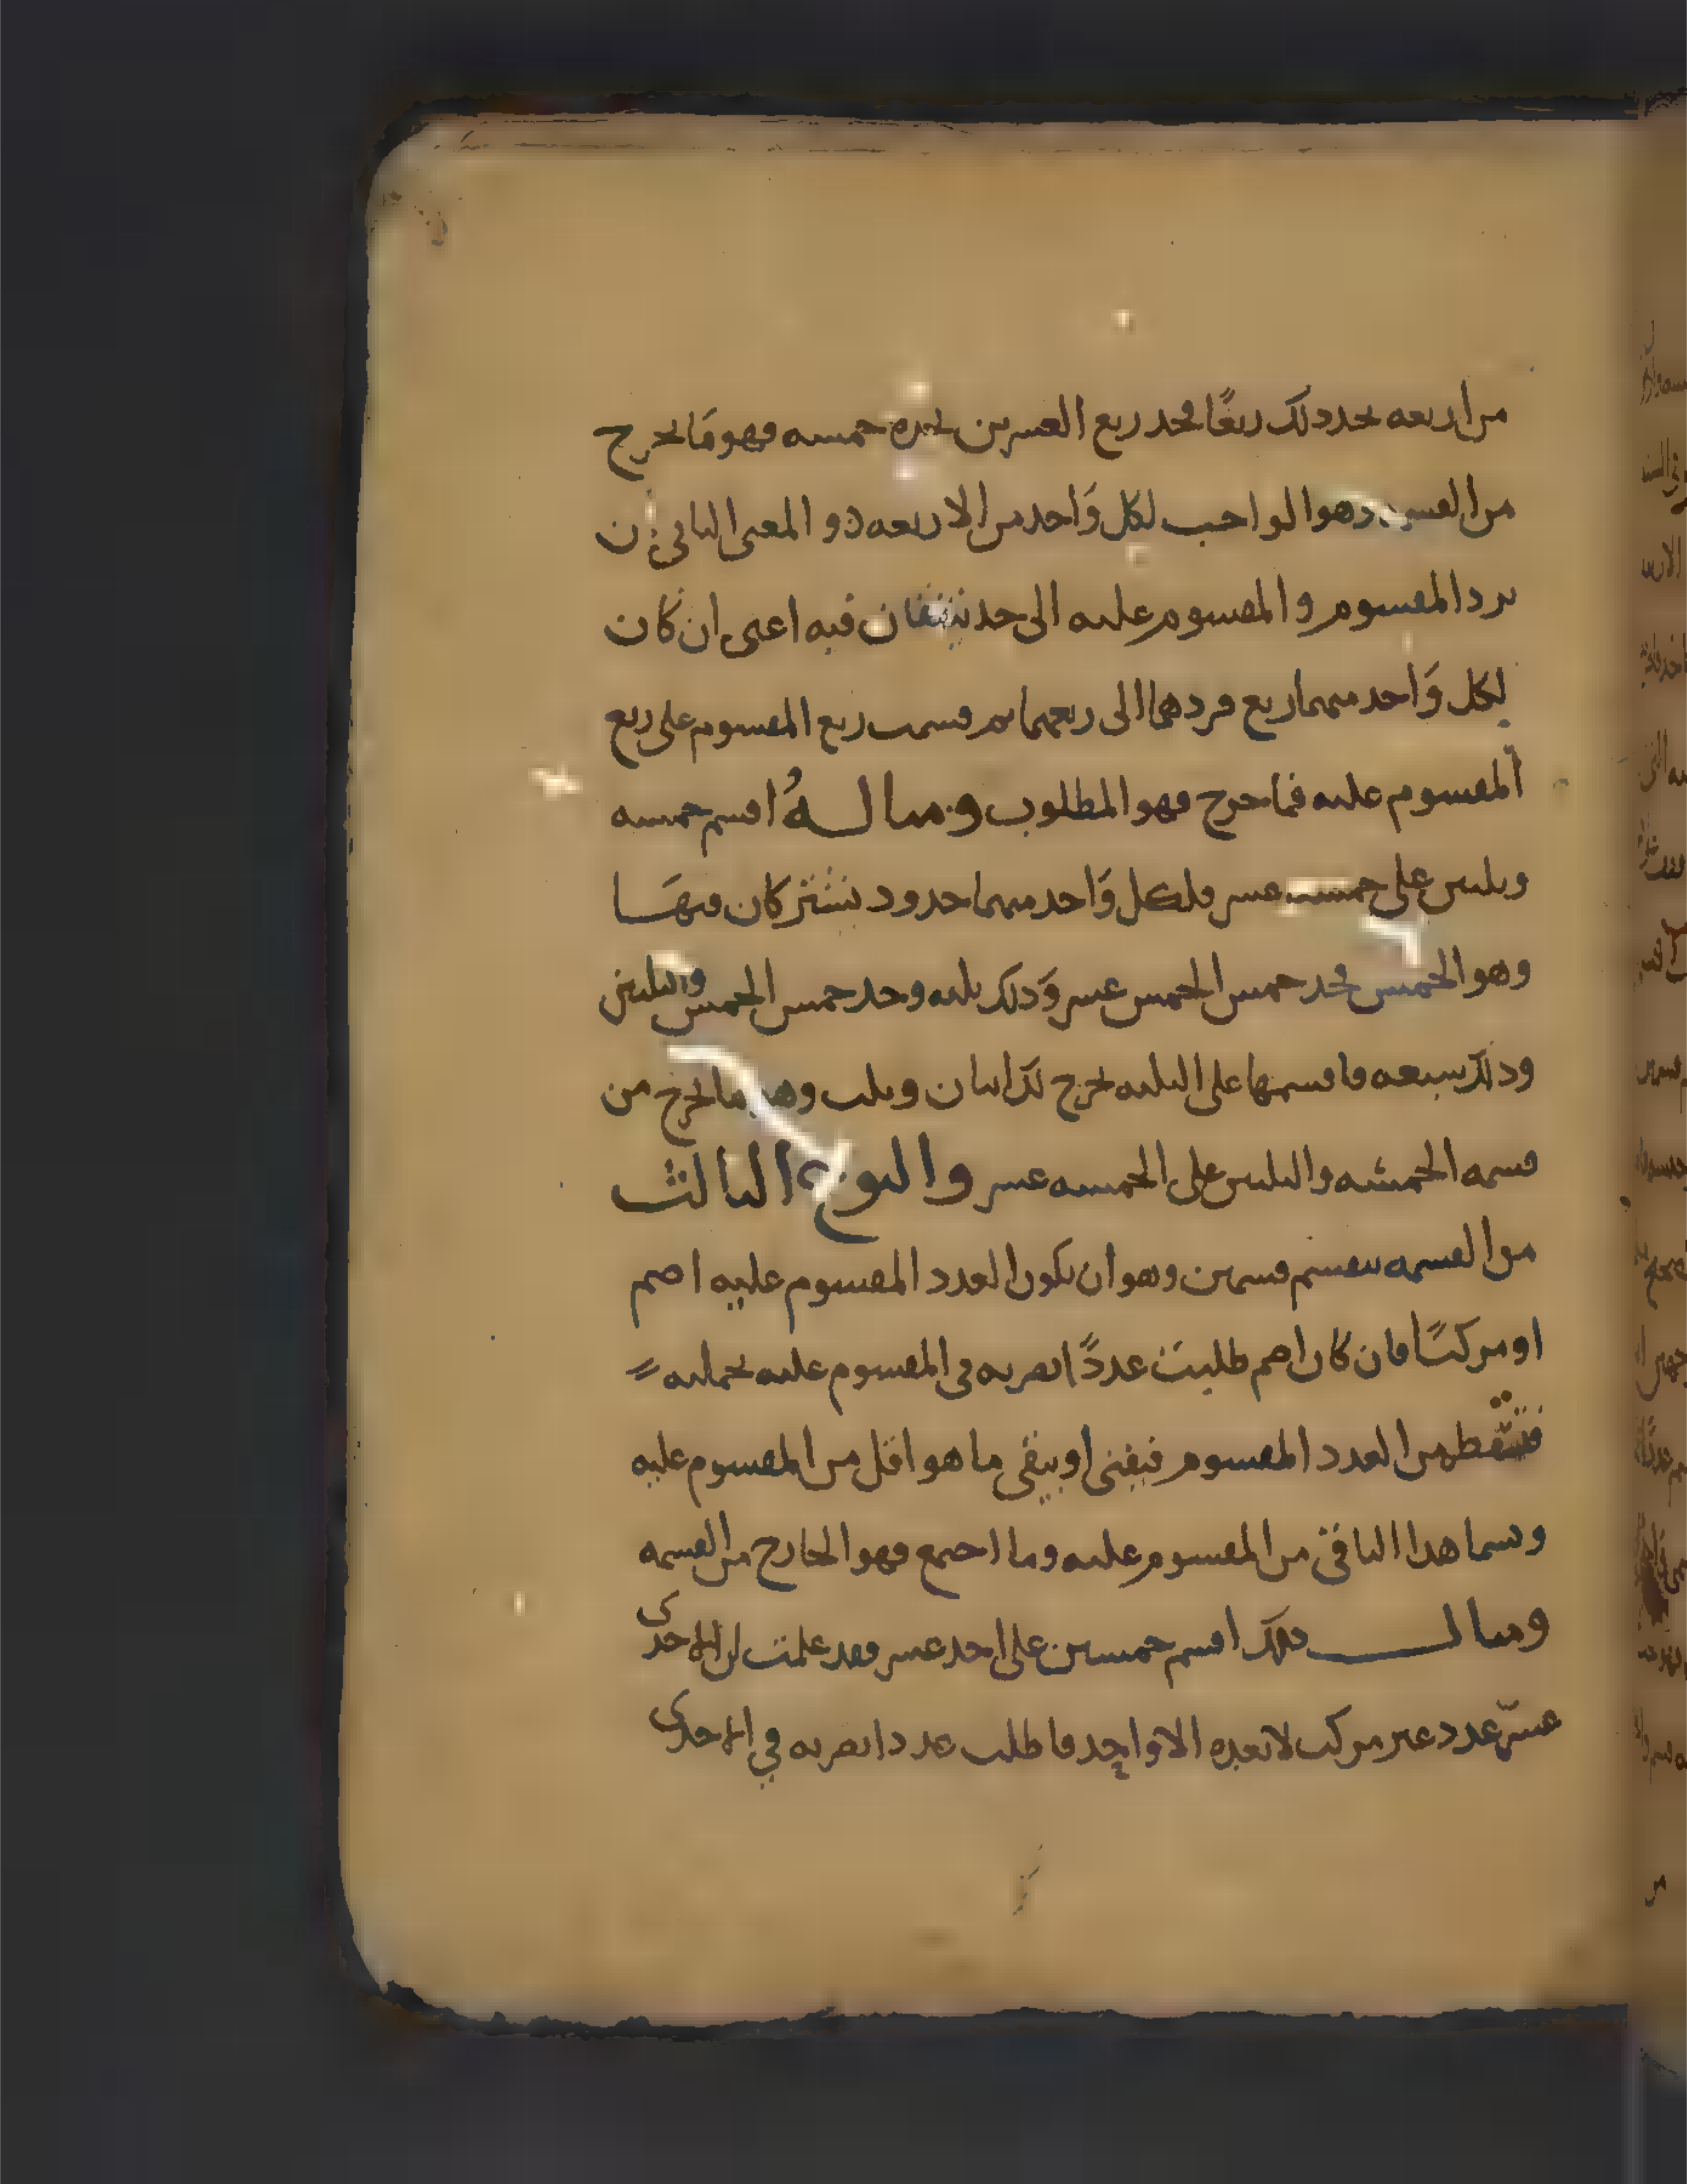 من اربعه تجد ذلك ربعًا فخذ ربع العسرين تجده خمسه فهو مَا يخرج
من العسرين وهو الواجب لكل وَاحد من الاربعه و المعنى الثاني ان
يرد المقسوم و المقسوم عليه الى حد يتفقان فيه اعنى ان كان
لكل وَاحد منهما ربع فردهما الى ربعهما ثم قسمت ربع المقسوم على ربع
المقسوم عليه فما خرج فهو المطلوب ومثالهُ اقسم خمسه
وثلثين على خمسه عشر فلكل وَاحد منهما حدود يشتركان فيهَا
وهو الخمس فخذ خمس الخمس عشر وَذلك ثلثه وخذ خمس الخمس والثلثين
وذلك سبعه فاقسمها على الثلثه تخرج لك اثنان وثلث وهو ما يخرج من
قسمه الخمسه والثلثين على الخمسه عشر والنوع الثالث
من القسمه ينقسم قسمين وهو ان يكون العدد المقسوم عليه اصم
او مركبًا فان كان اصم طلبت عددًا تضربه في المقسوم عليه بجملته
فتسقط من العدد المقسوم فيفنى او يبقى ما هو اقل من المقسوم عليه
وتسما هذا الباقي من المقسوم عليه وما اجتمع فهو الخارج من القسمه
ومثال ذلك اقسم خمسين على احد عشر فقد علمت ان الاحدى
عشر عدد غير مركب لا تعده الا واحد فاطلب عددا تضربه في الاحدى